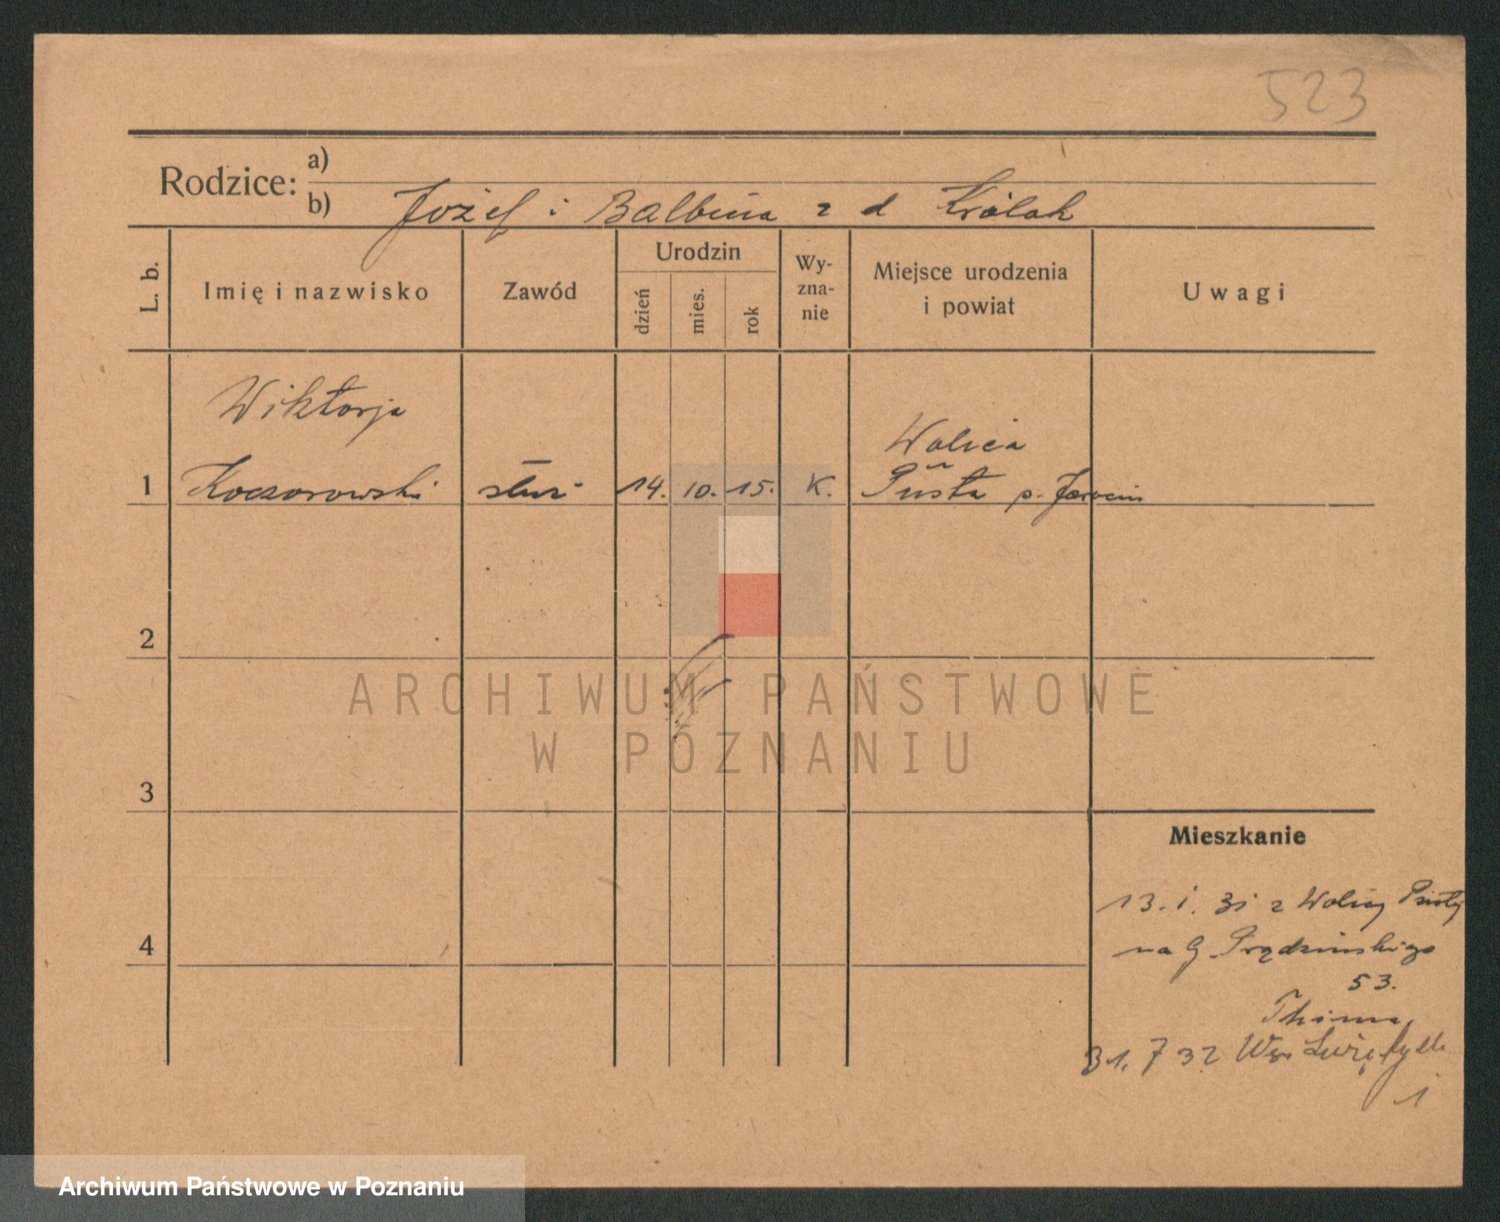 523
Rodzice: a)
b) Jożef i Balbina z d Królak
L. b.
Imię i nazwisko
Zawód
Urodzin
dzień
mies.
rok
Wy-
zna-
nie
Miejsce urodzenia
i powiat
Uwagi
Wiktorja
Wolica
1 Koczorowski służ 14. 10. 15. K. Pusta p. Jarocin
2
ARCHIWUM PAŃSTWOWE
W POZNANIU
3
Mieszkanie
13. i. 31 z Wolicy Pustej
4
na G. Prądzińskiego
53.
Thima
31. 7 32 Wsz Świętych
1
Archiwum Państwowe w Poznaniu